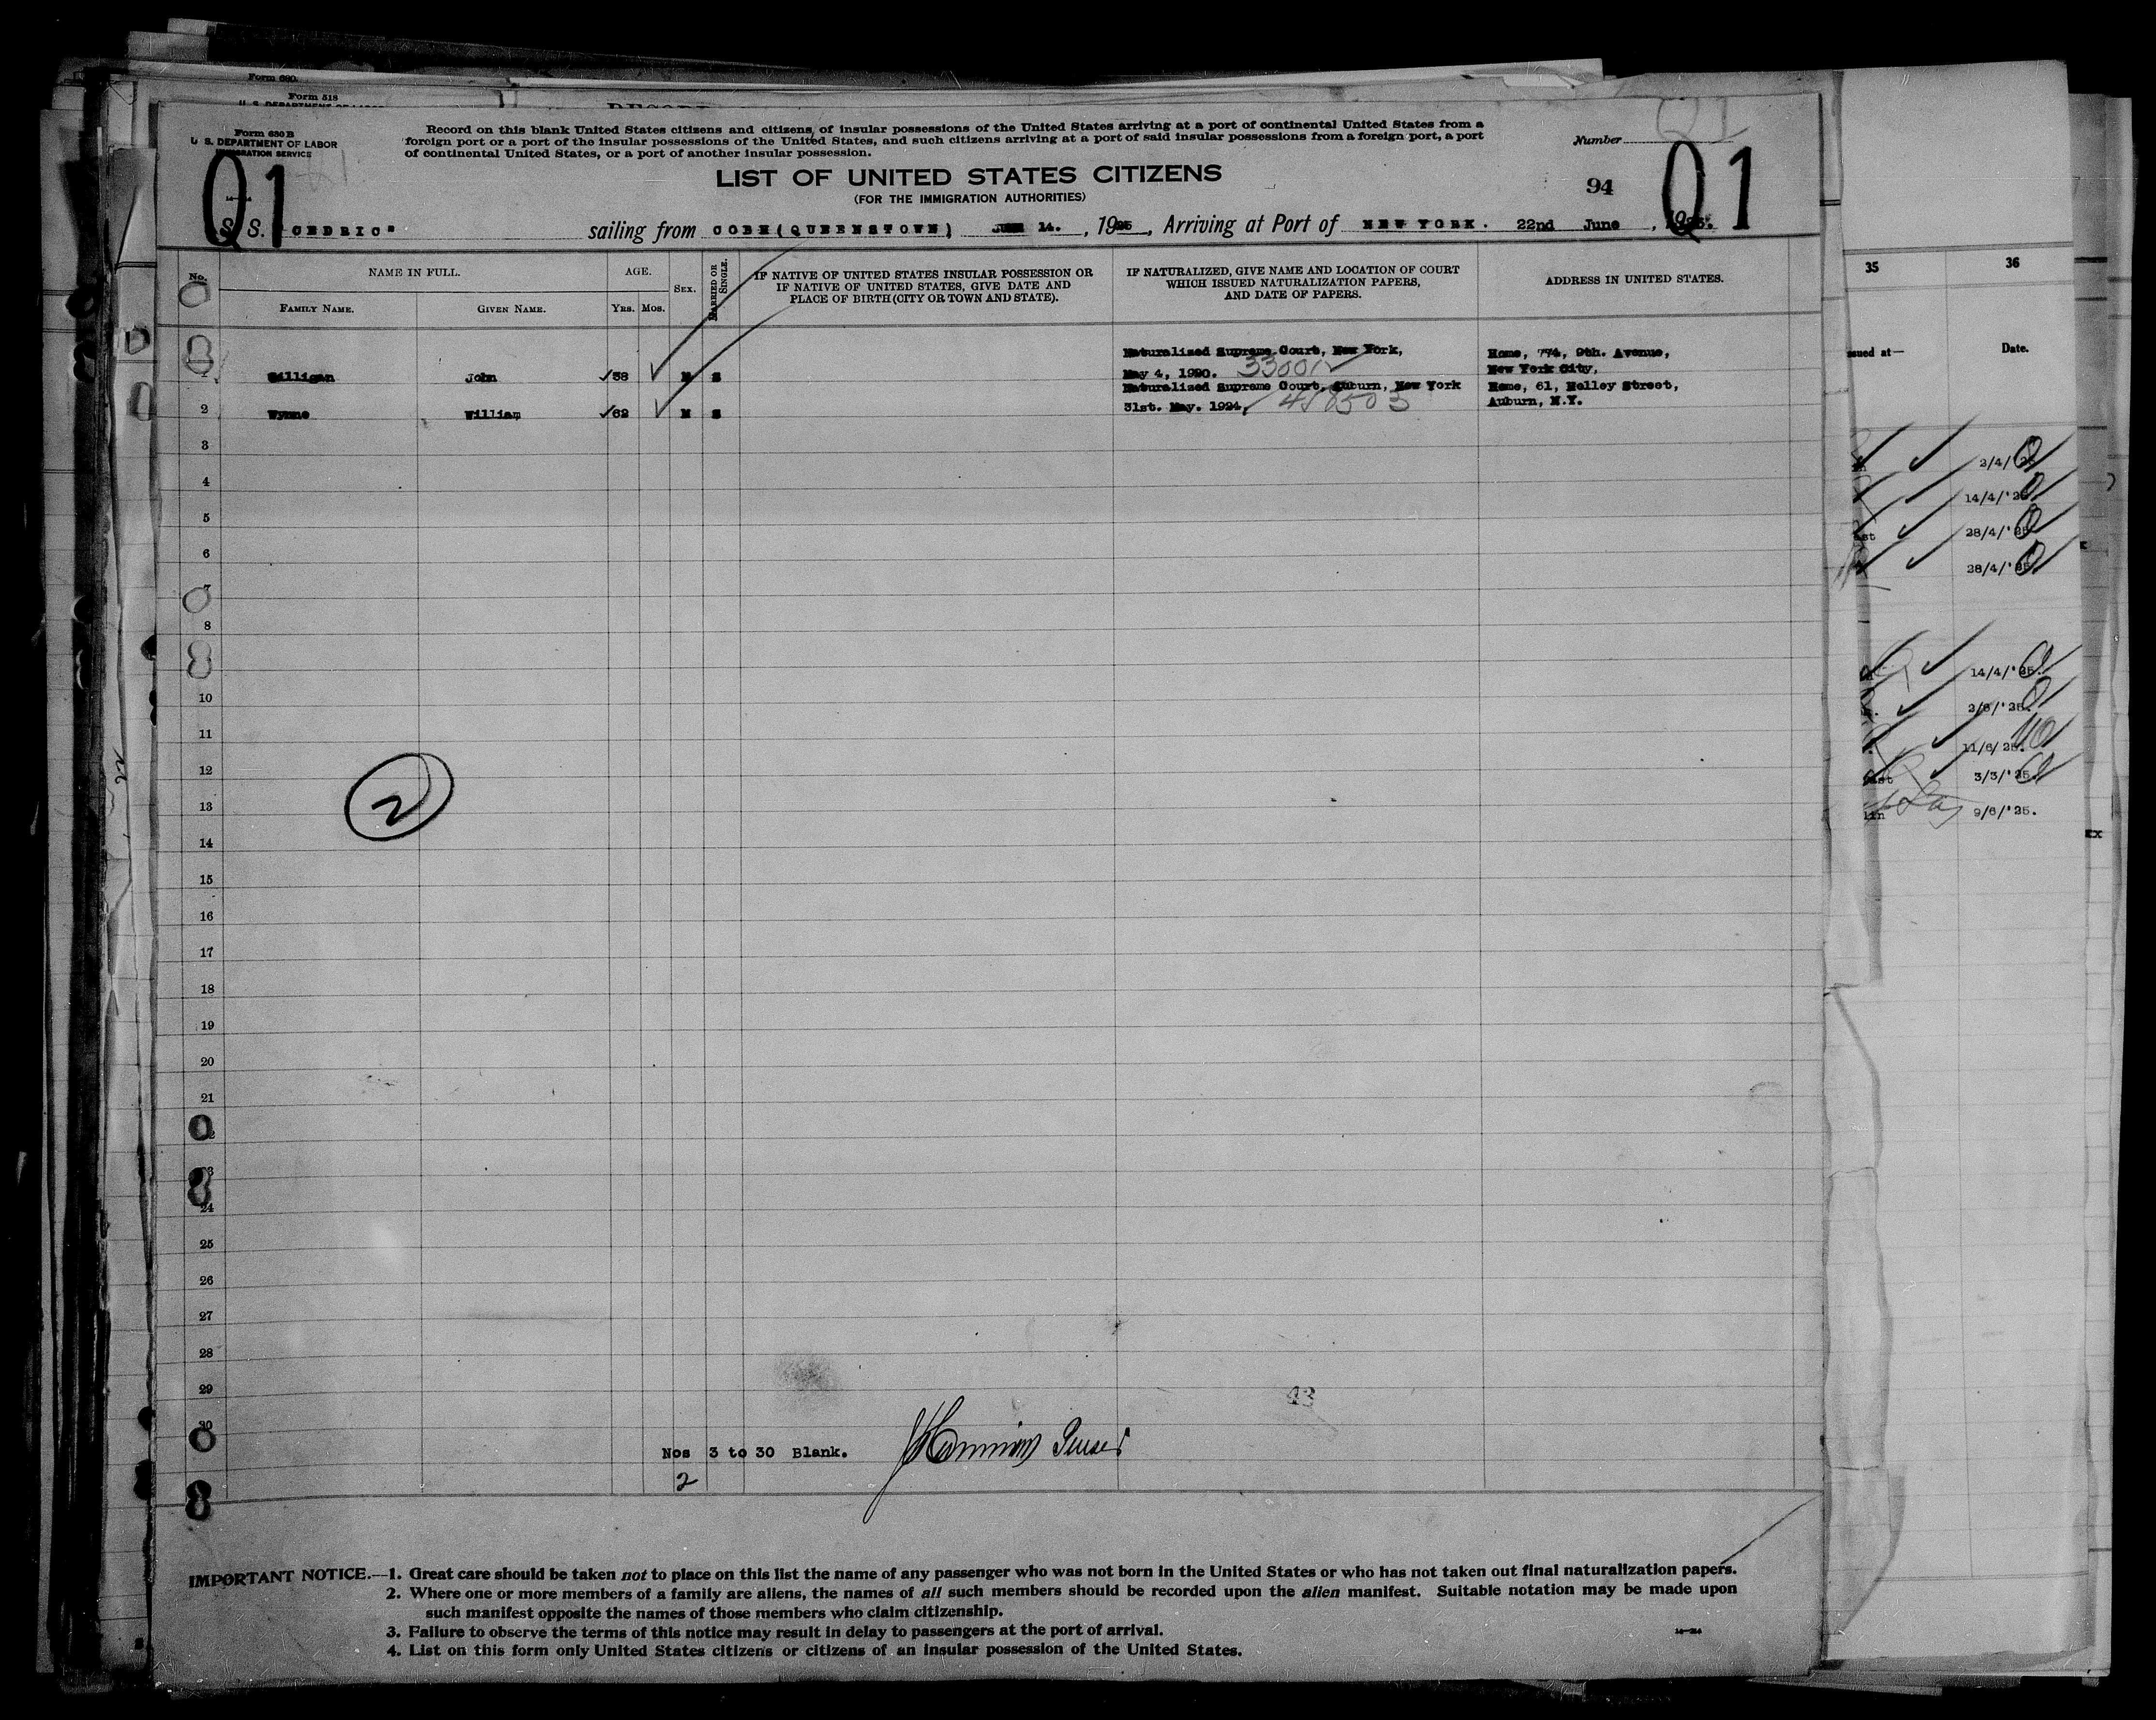 Form 630.
Form 518
Form 630 B
U. S. DEPARTMENT OF LABOR
IMMIGRATION SERVICE
Record on this blank United States citizens and citizens of insular possessions of the United States arriving at a port of continental United States from a
foreign port or a port of the insular possessions of the United States, and such citizens arriving at a port of said insular possessions from a foreign port, a port
of continental United States, or a port of another insular possession.
Number
Q1
Q1
LIST OF UNITED STATES CITIZENS
94
(FOR THE IMMIGRATION AUTHORITIES)
S. S. CEDRIC" sailing from COBH (QUEENSTOWN) JUNE 14. , 1925, Arriving at Port of NEW YORK. 22nd June , 1925.
No. NAME IN FULL. AGE. SEX. MARRIED OR SINGLE. IF NATIVE OF UNITED STATES INSULAR POSSESSION OR
IF NATIVE OF UNITED STATES, GIVE DATE AND
PLACE OF BIRTH (CITY OR TOWN AND STATE).
IF NATURALIZED, GIVE NAME AND LOCATION OF COURT
WHICH ISSUED NATURALIZATION PAPERS,
AND DATE OF PAPERS.
ADDRESS IN UNITED STATES.
FAMILY NAME. GIVEN NAME. YRS. MOS.
Naturalized Supreme Court, New York, Home, 774, 9th. Avenue,
1 Gilligan John 38 M S May 4, 1920. New York City,
Naturalized Supreme Court, Auburn, New York Home, 61, Holley Street,
2 Wynne William 62 M S 31st. May. 1924, Auburn, N.Y.
3
4
5
6
7
8
10
11
12
13
14
15
16
17
18
19
20
21
23
24
25
26
27
28
29
30
2
43
Nos 3 to 30 Blank. Purser
2
IMPORTANT NOTICE.—1. Great care should be taken not to place on this list the name of any passenger who was not born in the United States or who has not taken out final naturalization papers.
2. Where one or more members of a family are aliens, the names of all such members should be recorded upon the alien manifest. Suitable notation may be made upon
such manifest opposite the names of those members who claim citizenship.
3. Failure to observe the terms of this notice may result in delay to passengers at the port of arrival.
4. List on this form only United States citizens or citizens of an insular possession of the United States.
35 36
ssued at— Date.
2/4/'25
14/4/'25
28/4/'25
28/4/'25
14/4/'25.
2/6/'25.
11/6/25.
3/3/'25
lin 9/6/'25.